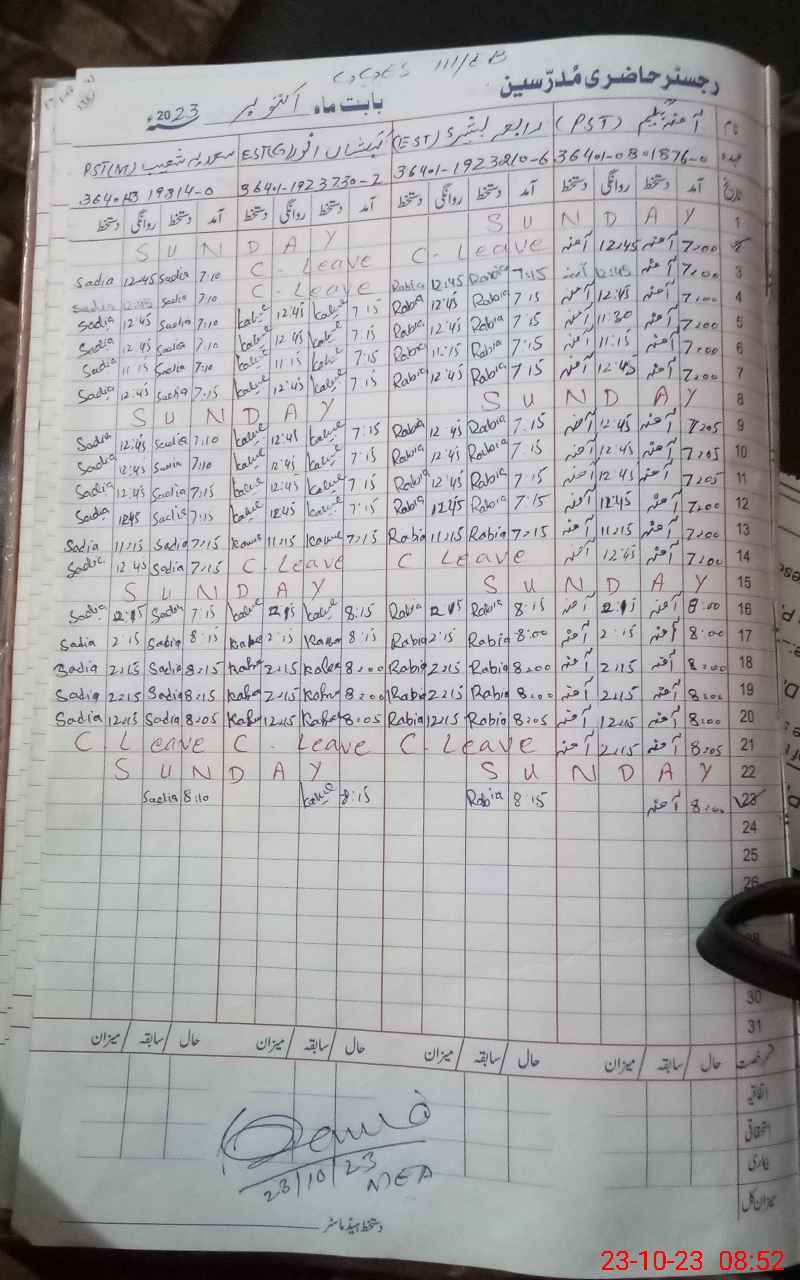 GGES 111/EB
رجسٹر حاضری مُدرّسین
بابت ماہ اکتوبر 2023ء
نام آمنہ بیگم (PST) رابعہ بشریٰ (EST) EST(G) سعدیہ شعیب PST(M)
عہدہ 36401-0801876-0 36401-1923210-6 36401-1923730-2
تاریخ آمد دستخط روانگی دستخط آمد دستخط روانگی دستخط آمد دستخط روانگی دستخط آمد دستخط روانگی دستخط
1 SUNDAY SUNDAY
2 7:00 آمنہ 12:45 آمنہ C-Leave C-Leave 7:10 Sadia 12:45 Sadia
3 7:00 آمنہ 12:45 آمنہ 7:15 Rabia 12:45 Rabia C-Leave 7:10 Sadia 12:45 Sadia
4 7:00 آمنہ 12:45 آمنہ 7:15 Rabia 12:45 Rabia 7:15 12:45 7:10 Sadia 12:45 Sadia
5 7:00 آمنہ 11:30 آمنہ 7:15 Rabia 12:45 Rabia 7:15 12:45 7:10 Sadia 12:45 Sadia
6 7:00 آمنہ 11:15 آمنہ 7:15 Rabia 11:15 Rabia 7:15 11:15 7:10 Sadia 11:15 Sadia
7 7:00 آمنہ 12:45 آمنہ 7:15 Rabia 12:45 Rabia 7:15 12:45 7:15 Sadia 12:45 Sadia
8 SUNDAY SUNDAY
9 7:05 آمنہ 12:45 آمنہ 7:15 Rabia 12:45 Rabia 7:15 12:45 7:10 Sadia 12:45 Sadia
10 7:05 آمنہ 12:45 آمنہ 7:15 Rabia 12:45 Rabia 7:15 12:45 7:10 Sadia 12:45 Sadia
11 7:05 آمنہ 12:45 آمنہ 7:15 Rabia 12:45 Rabia 7:15 12:45 7:15 Sadia 12:45 Sadia
12 7:00 آمنہ 12:45 آمنہ 7:15 Rabia 12:45 Rabia 7:15 12:45 7:15 Sadia 12:45 Sadia
13 7:00 آمنہ 11:15 آمنہ 7:15 Rabia 11:15 Rabia 7:15 11:15 7:15 Sadia 11:15 Sadia
14 7:00 آمنہ 12:45 آمنہ C Leave C Leave 7:15 Sadia 12:45 Sadia
15 SUNDAY SUNDAY
16 8:00 آمنہ آمنہ 8:15 Rabia Rabia 8:15 7:15 Sadia Sadia
17 8:00 آمنہ 2:15 آمنہ 8:00 Rabia 2:15 Rabia 8:15 2:15 8:15 Sadia 2:15 Sadia
18 8:00 آمنہ 2:15 آمنہ 8:00 Rabia 2:15 Rabia 8:00 2:15 8:15 Sadia 2:15 Sadia
19 8:00 آمنہ 2:15 آمنہ 8:00 Rabia 2:15 Rabia 8:00 2:15 8:15 Sadia 2:15 Sadia
20 8:00 آمنہ 12:15 آمنہ 8:05 Rabia 12:15 Rabia 8:05 12:15 8:05 Sadia 12:15 Sadia
21 8:05 آمنہ 2:15 آمنہ C-Leave C-Leave C Leave
22 SUNDAY SUNDAY
23 8:00 آمنہ 8:15 Rabia 8:15 8:10 Sadia
24
25
26
30
31
حال سابقہ میزان حال سابقہ میزان حال سابقہ میزان حال سابقہ میزان
اتفاقیہ
استحقاقی
بیماری
میزان کل
23/10/23
MEA
دستخط ہیڈ ماسٹر
23-10-23 08:52